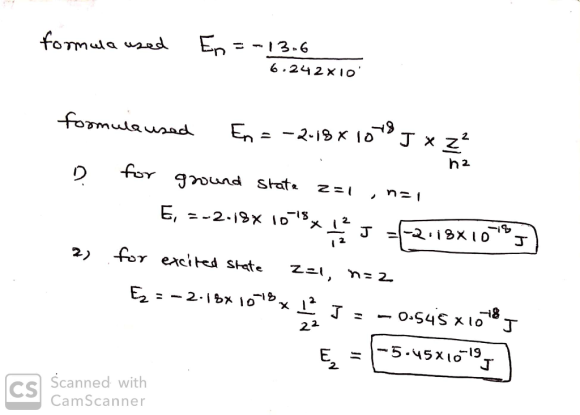 formula used En = -13.6
6.242x10
formula used En = -2.18 x 10^-18 J x Z^2/n^2
1) for ground state z=1 , n=1
E1 = -2.18x 10^-18 x 1^2/1^2 J = -2.18x10^-18 J
2) for excited state z=1, n=2
E2 = -2.18x 10^-18 x 1^2/2^2 J = - 0.545 x 10^-18 J
E2 = -5.45x10^-19 J
CS Scanned with
CamScanner